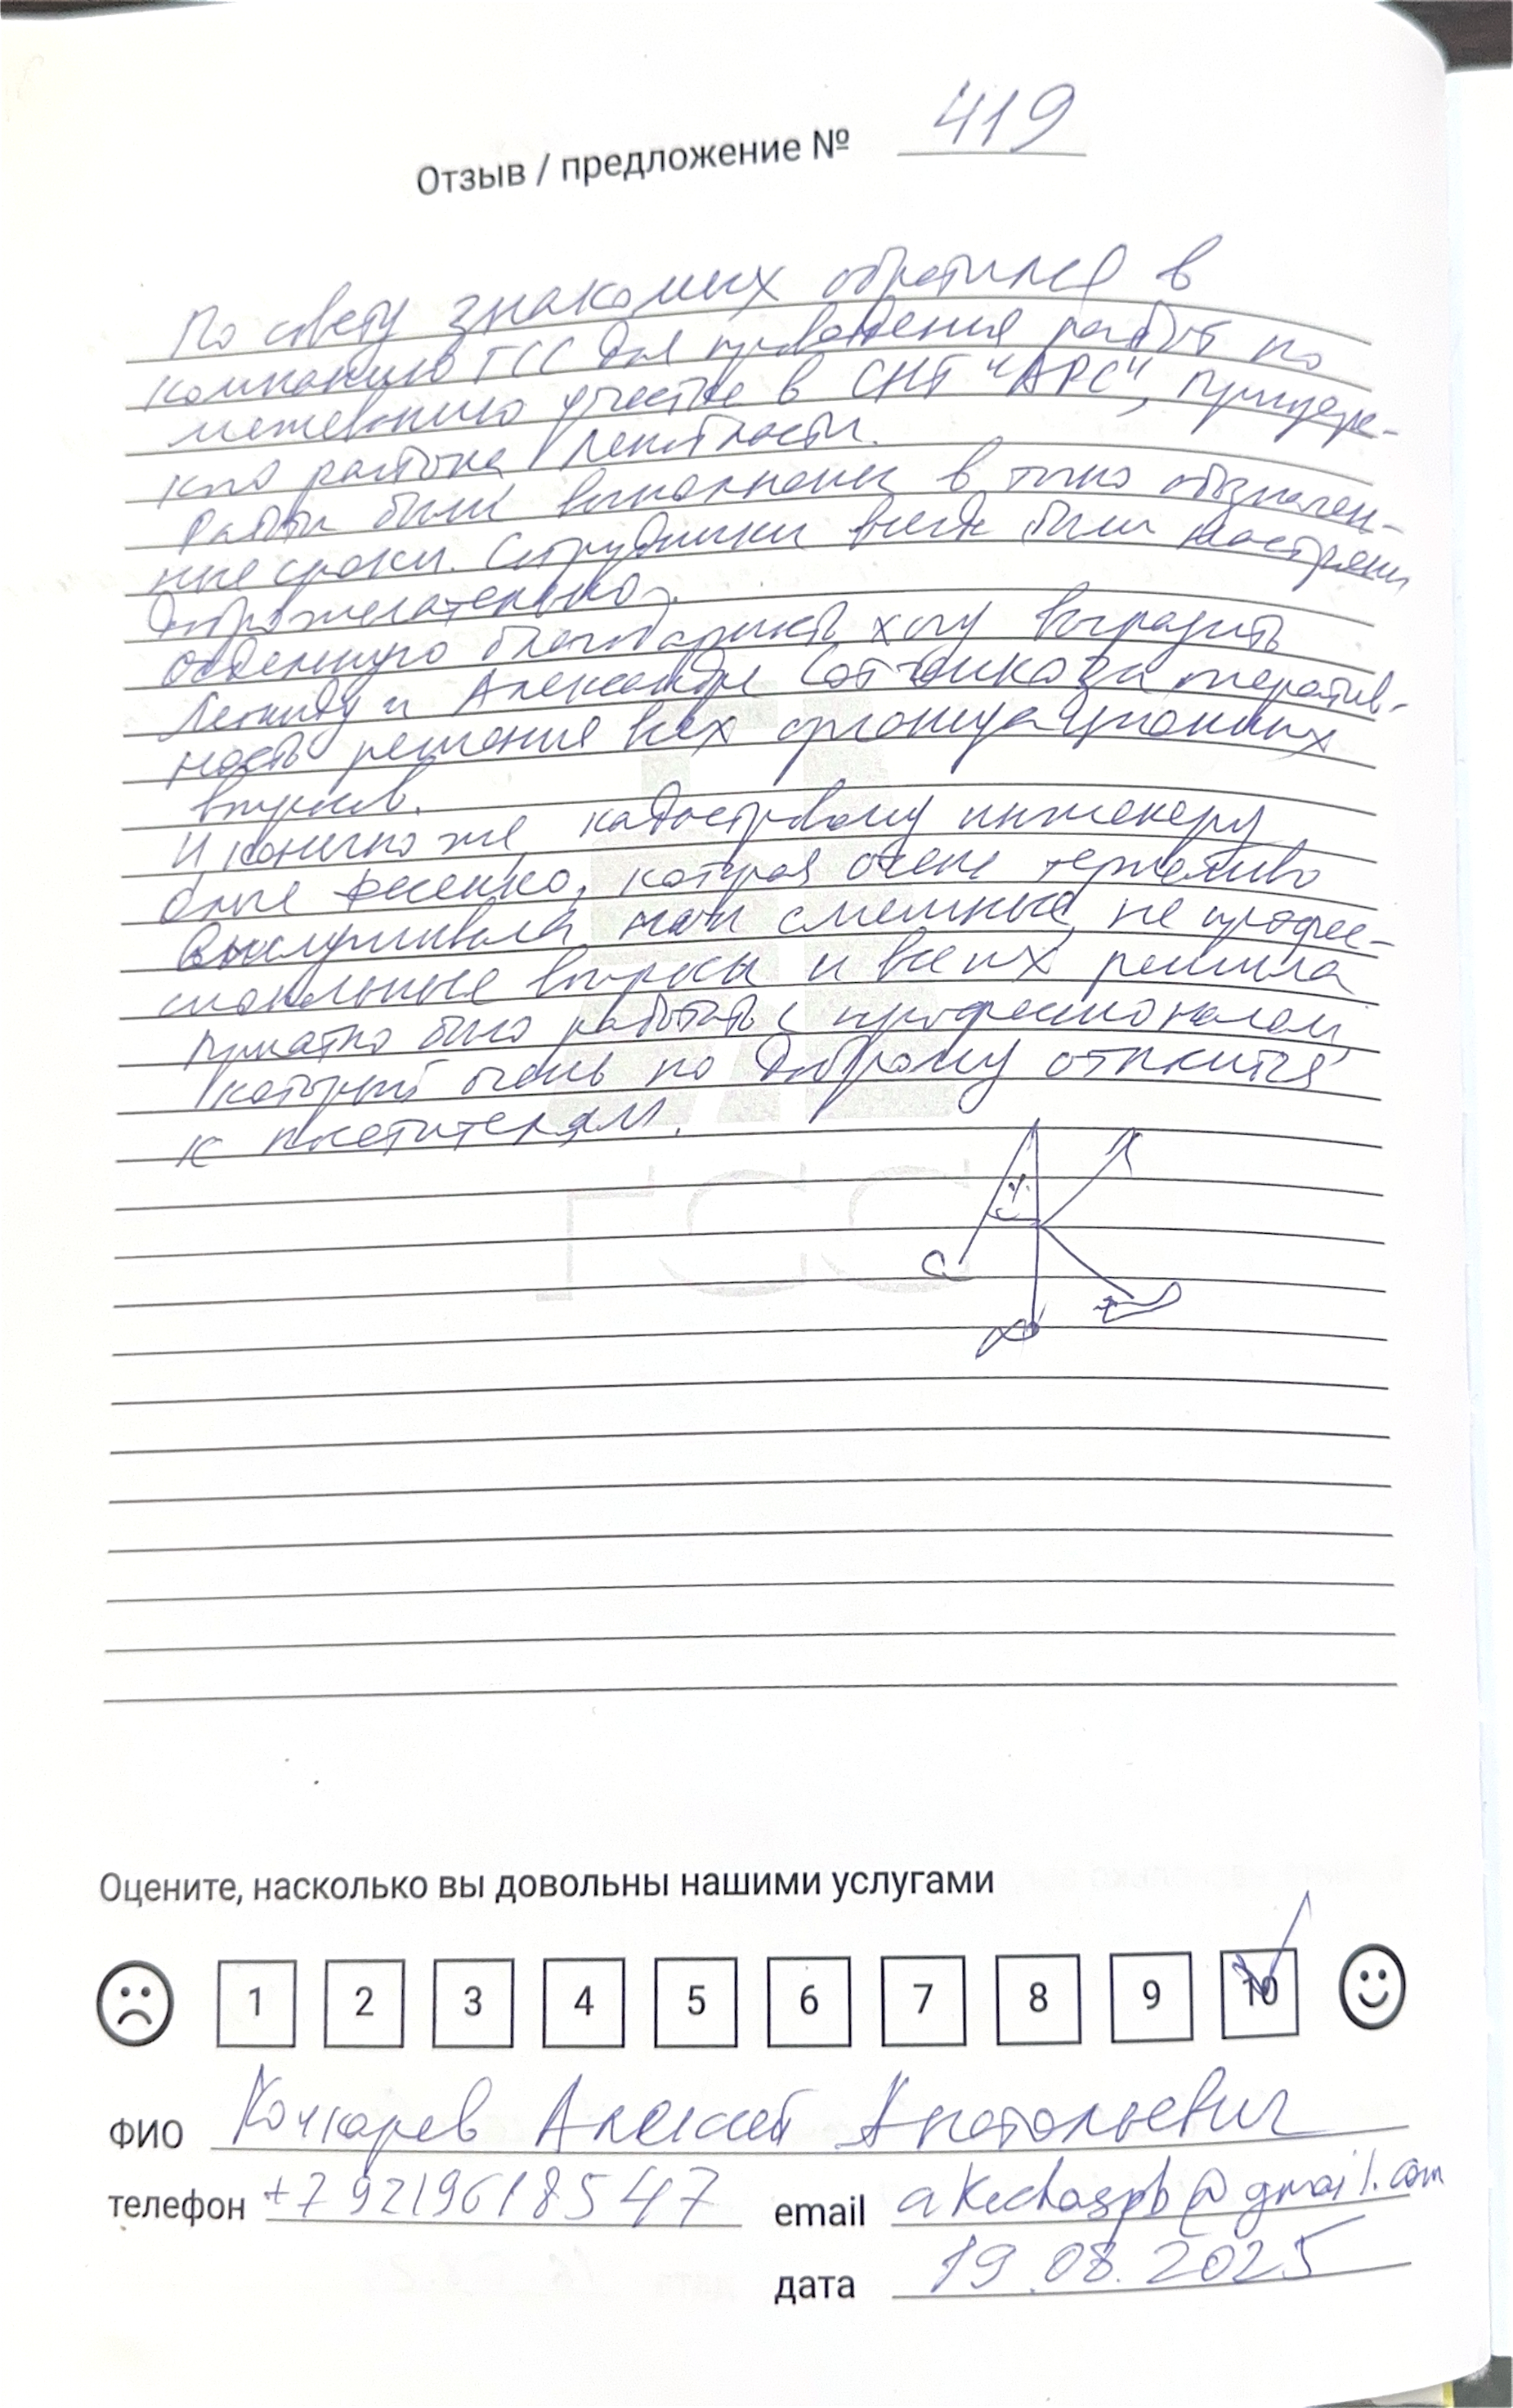 Отзыв / предложение № 419
По совету знакомых обратился в
компанию ГСС для проведения работ по
межеванию участка в СНТ "АРС", Приозерс-
кого района Ленобласти.
Работы были выполнены в точно обозначен-
ные сроки. Сотрудники всегда были настроены
доброжелательно.
Отдельную благодарность хочу выразить
Леониду и Александре за оператив-
ность решения всех организационных
вопросов.
И конечно же, кадастровому инженеру
Ольге Фесенко, которая очень терпеливо
выслушивала мои смешные, не профес-
сиональные вопросы и всех решила
Приятно было работать с профессионалом,
который очень по доброму относится
к посетителям.
ГСС
Оцените, насколько вы довольны нашими услугами
1 2 3 4 5 6 7 8 9 10
ФИО Кочкарев Алексей Анатольевич
телефон +79219618547 email akechaspb@gmail.com
дата 19.08.2025